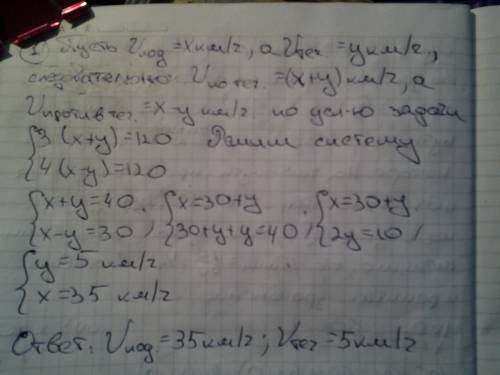 1) Пусть Vлод = x км/г, а Vтеч = y км/г,
следовательно Vпо теч. = (x+y) км/г, а
Vпротив теч. = x-y км/г. по усл-ю задачи
{3(x+y)=120 Решим систему
{4(x-y)=120
{x+y=40, {x=30+y {x=30+y
{x-y=30 {30+y+y=40, {2y=10,
{y=5 км/г
{x=35 км/г
Ответ: Vлод. = 35 км/г; Vтеч = 5 км/г